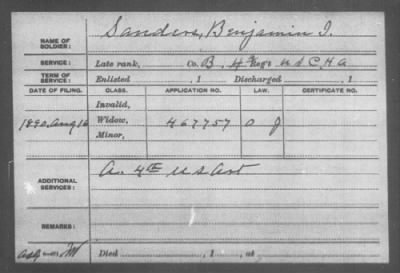 NAME OF SOLDIER: Sanders, Benjamin I.
SERVICE: Late rank, Co. B, 4th Reg't U S C H A
TERM OF SERVICE: Enlisted , 1 Discharged , 1
DATE OF FILING. CLASS. APPLICATION NO. LAW. CERTIFICATE NO.
Invalid,
1890, Aug 16 Widow, 467757 O J
Minor,
ADDITIONAL SERVICES: A. 4th U S Art
REMARKS:
Died , 1 , at